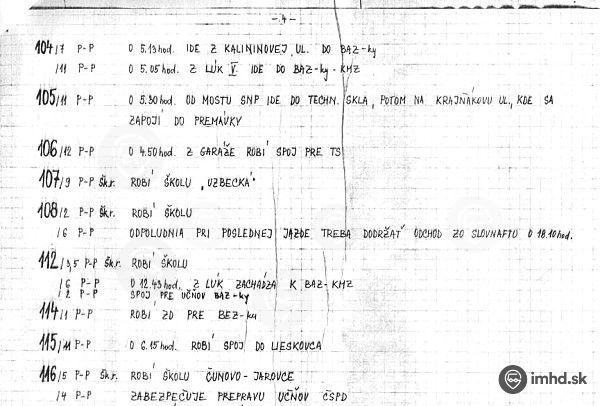 - 4 -
104/7 P-P O 5.13 hod. IDE Z KALININOVEJ UL. DO BAZ-ky
/11 P-P O 5.05 hod. Z LÚK V. IDE DO BAZ-ky - KMZ
105/11 P-P O 5.30 hod. OD MOSTU SNP IDE DO TECHN. SKLA, POTOM NA KRAJŇÁKOVU UL., KDE SA
ZAPOJÍ DO PREMÁVKY
106/12 P-P O 4.50 hod. Z GARÁŽE ROBÍ SPOJ PRE TS
107/9 P-P Šk.r. ROBÍ ŠKOLU "UZBECKÁ"
108/2 P-P Šk.r. ROBÍ ŠKOLU
/6 P-P ODPOLUDNIA PRI POSLEDNEJ JAZDE TREBA DODRŽAŤ ODCHOD ZO SLOVNAFTU O 18.10 hod.
112/3,5 P-P Šk.r. ROBÍ ŠKOLU
/6 P-P O 12.43 hod. Z LÚK ZACHÁDZA K BAZ-KMZ
/2 P-P SPOJ PRE UČŇOV BAZ-ky
114/1 P-P ROBÍ ZD PRE BEZ-ku
115/11 P-P O 6.15 hod. ROBÍ SPOJ DO LIESKOVCA
116/5 P-P Šk.r. ROBÍ ŠKOLU ČUNOVO-JAROVCE
/4 P-P ZABEZPEČUJE PREPRAVU UČŇOV ČSPD
imhd.sk